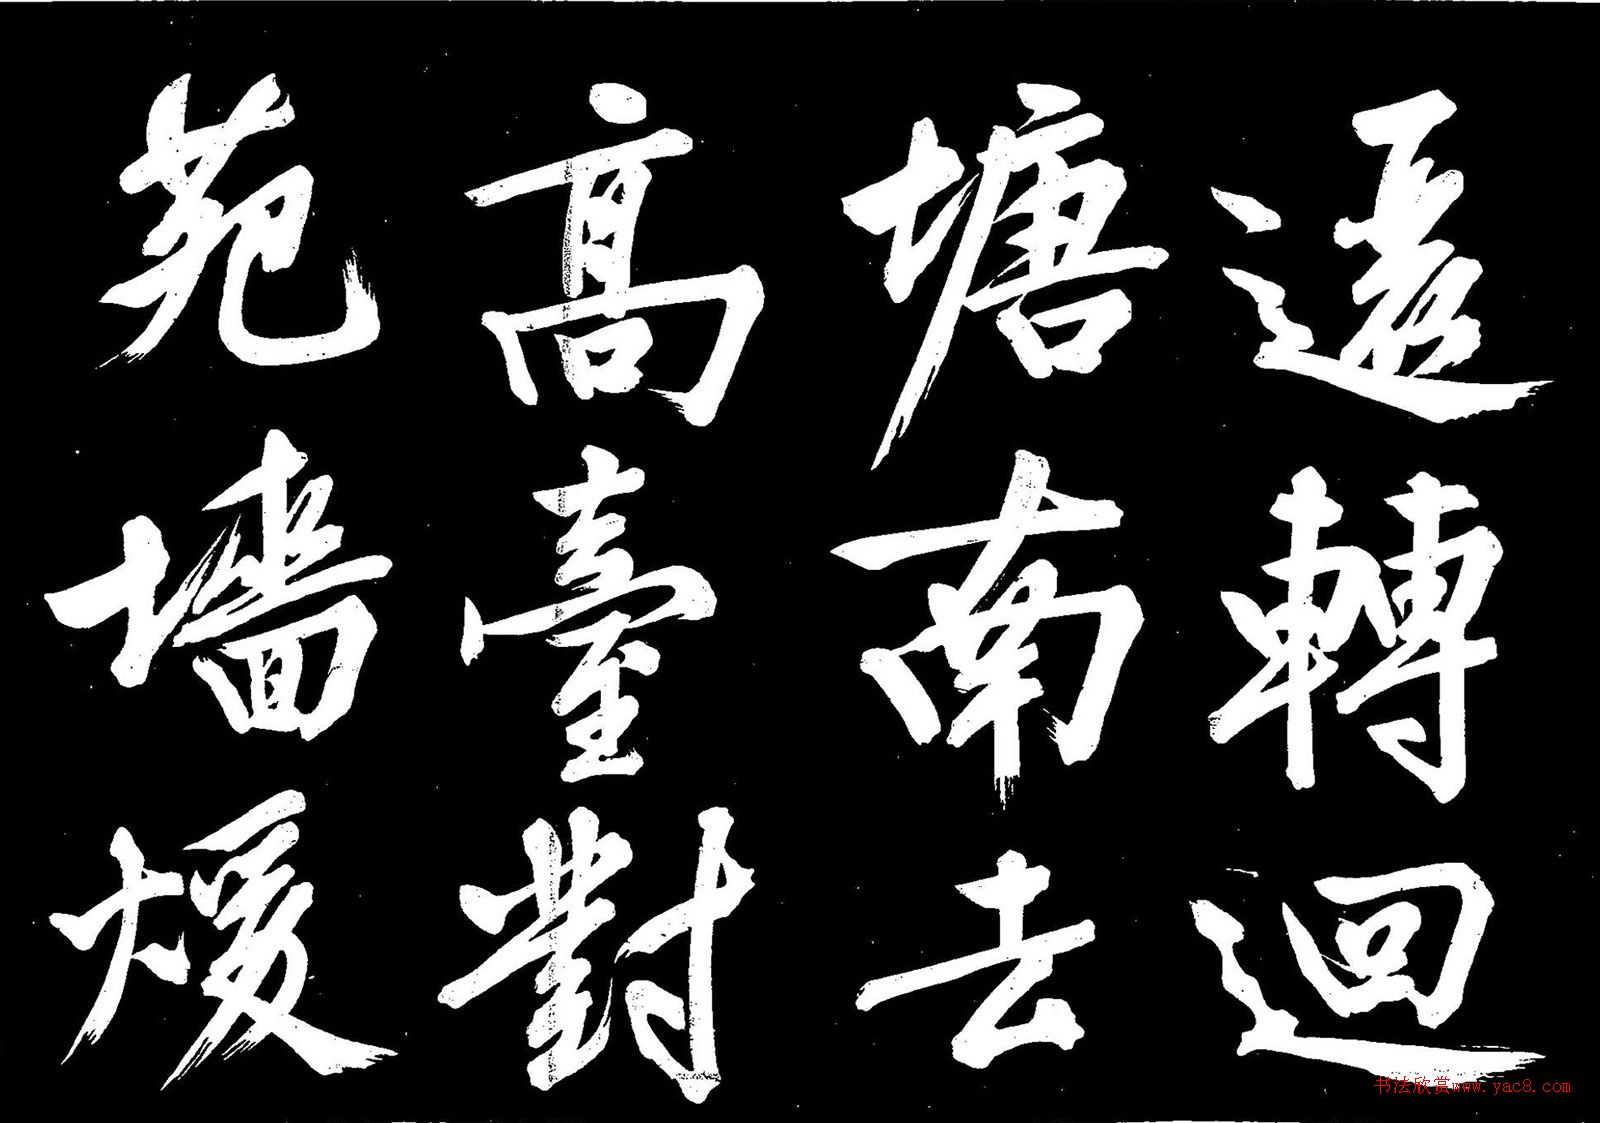 遠轉迴
塘南去
高臺對
苑墻煖
书法欣赏www.yac8.com